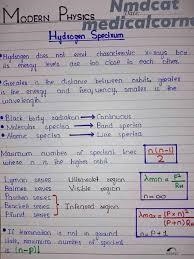 Nmdcat
medicalcorn
MODERN PHYSICS
Hydrogen Spectrum
Hydrogen does not emit characteristic x-rays bcz
its energy levels are too close to each other.
Greater is the distance between orbits, greater
is the energy and frequency, smaller is the
wavelength.
Black body radiation → Continuous
Molecular spectra → Band spectra
Atomic spectra → Line spectra
Maximum number of spectral lines n(n-1)
where n is the higher orbit 2
Lyman series Ultraviolet region
Balmer series Visible region
Paschen series
Brackett series Infrared region
Pfund series
λmin = P²
RH
n = ∞
λmax = (P×n)²
n = P+1
If termination is not in ground
state, maximum number of spectral
is (n-P)